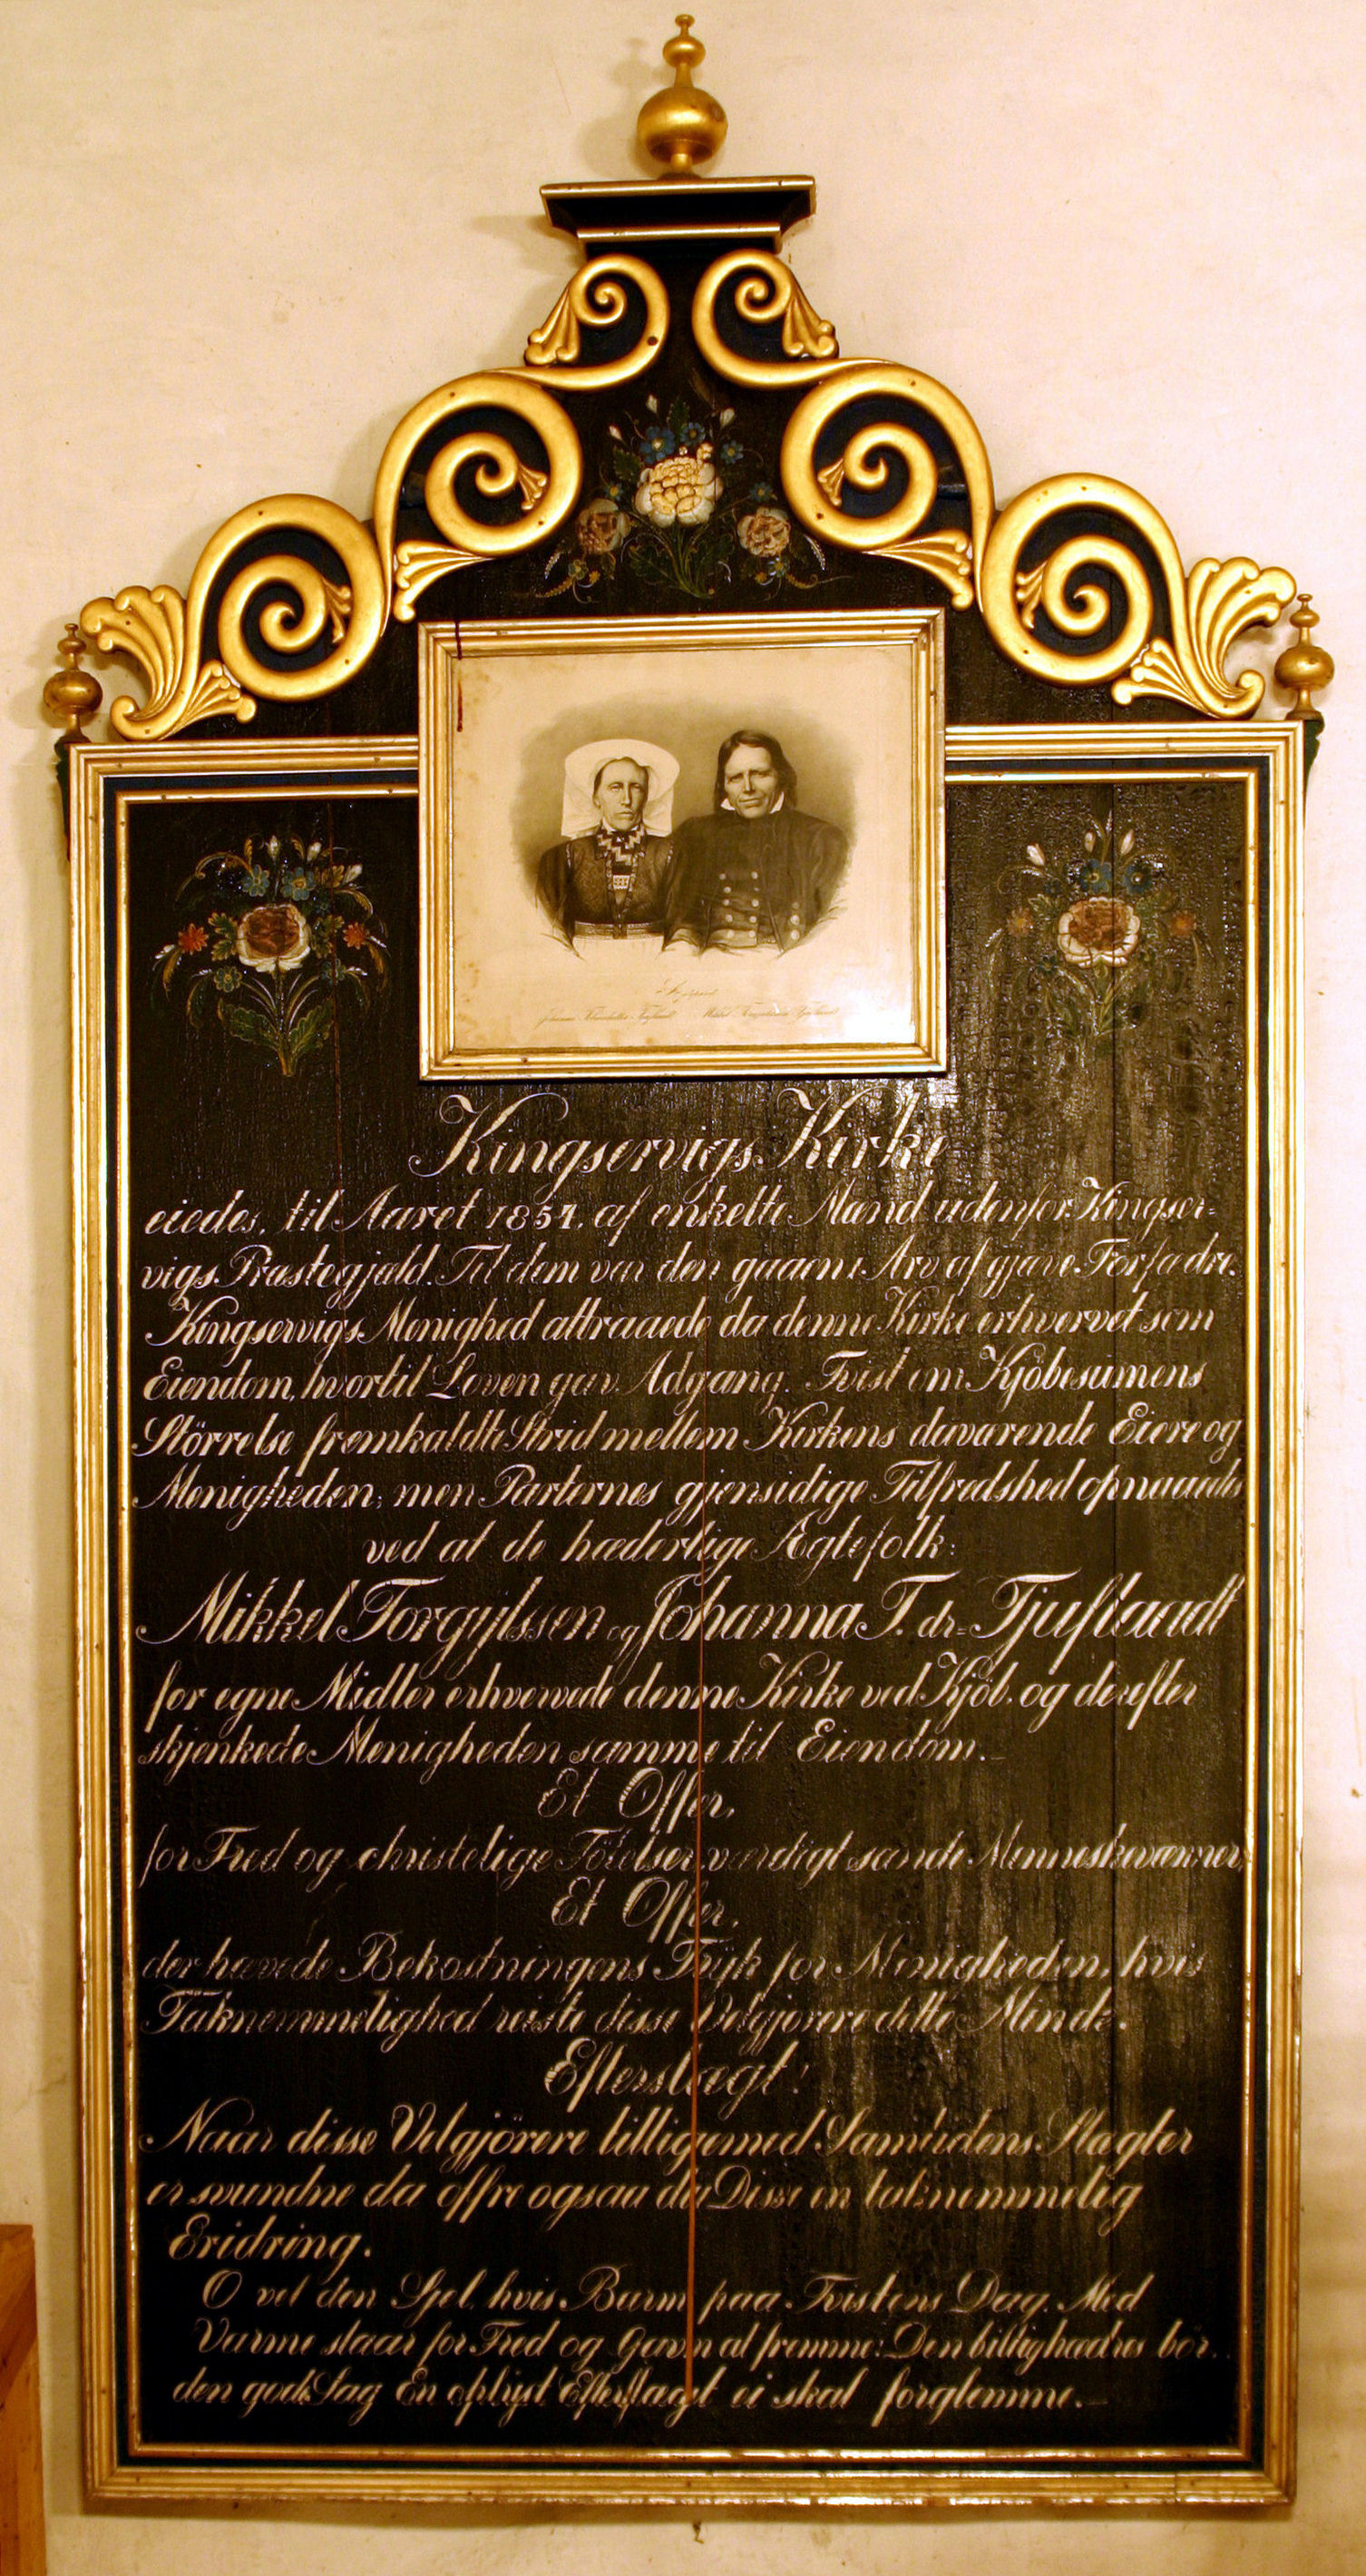 Kingservigs Kirke
eiedes, til Aaret 1854, af enkelte Mænd udenfor Kingser=
vigs Præstegjæld. Til dem var den gaaen i Arv af gjæve Forfædre.
Kingservigs Menighed attraaede da denne Kirke erhvervet som
Eiendom, hvortil Loven gav Adgang. Tvist om Kjöbesumens
Störrelse fremkaldte Strid mellem Kirkens davarende Eiere og
Menigheden; men Parternes gjensidige Tilfredshed opnaaedes
ved at de hæderlige Ægtefolk:
Mikkel Torgylssen og Johanna T. dr= Tjuflaadt
for egne Midler erhvervede denne Kirke ved Kjöb, og derefter
skjenkede Menigheden samme til Eiendom.–
Et Offer,
for Fred og christelige Fölelser, værdigt sande Menneskevænner,
Et Offer,
der hævede Bekostningens Tryk for Menigheden, hvis
Taknemmelighed reiste disse Velgjörere dette Minde.
Efterslægt!
Naar disse Velgjörere tilligemed Samtidens Slægter
er svundne da offre ogsaa du Disse en taknemmelig
Eridring.
O vel den Sjel, hvis Barm paa Tvistens Dag. Med
Varme slaar for Fred og Gavn at fremme: Den billighædres bör.
den gode Sag En oplyst Efterslagt ei skal forglemme.–